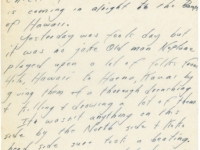 is coming in alright to the
of Hawaii.
Yesterday was fools day but
it was no joke Old man Neptune
played upon a lot of folks from
Hilo, Hawaii to Haena, Kauai by
giving them a thorough drenching
& killing & drowning a lot of them
It wasn't anything on this
side by the North side & Hilo
side sure took a beating.